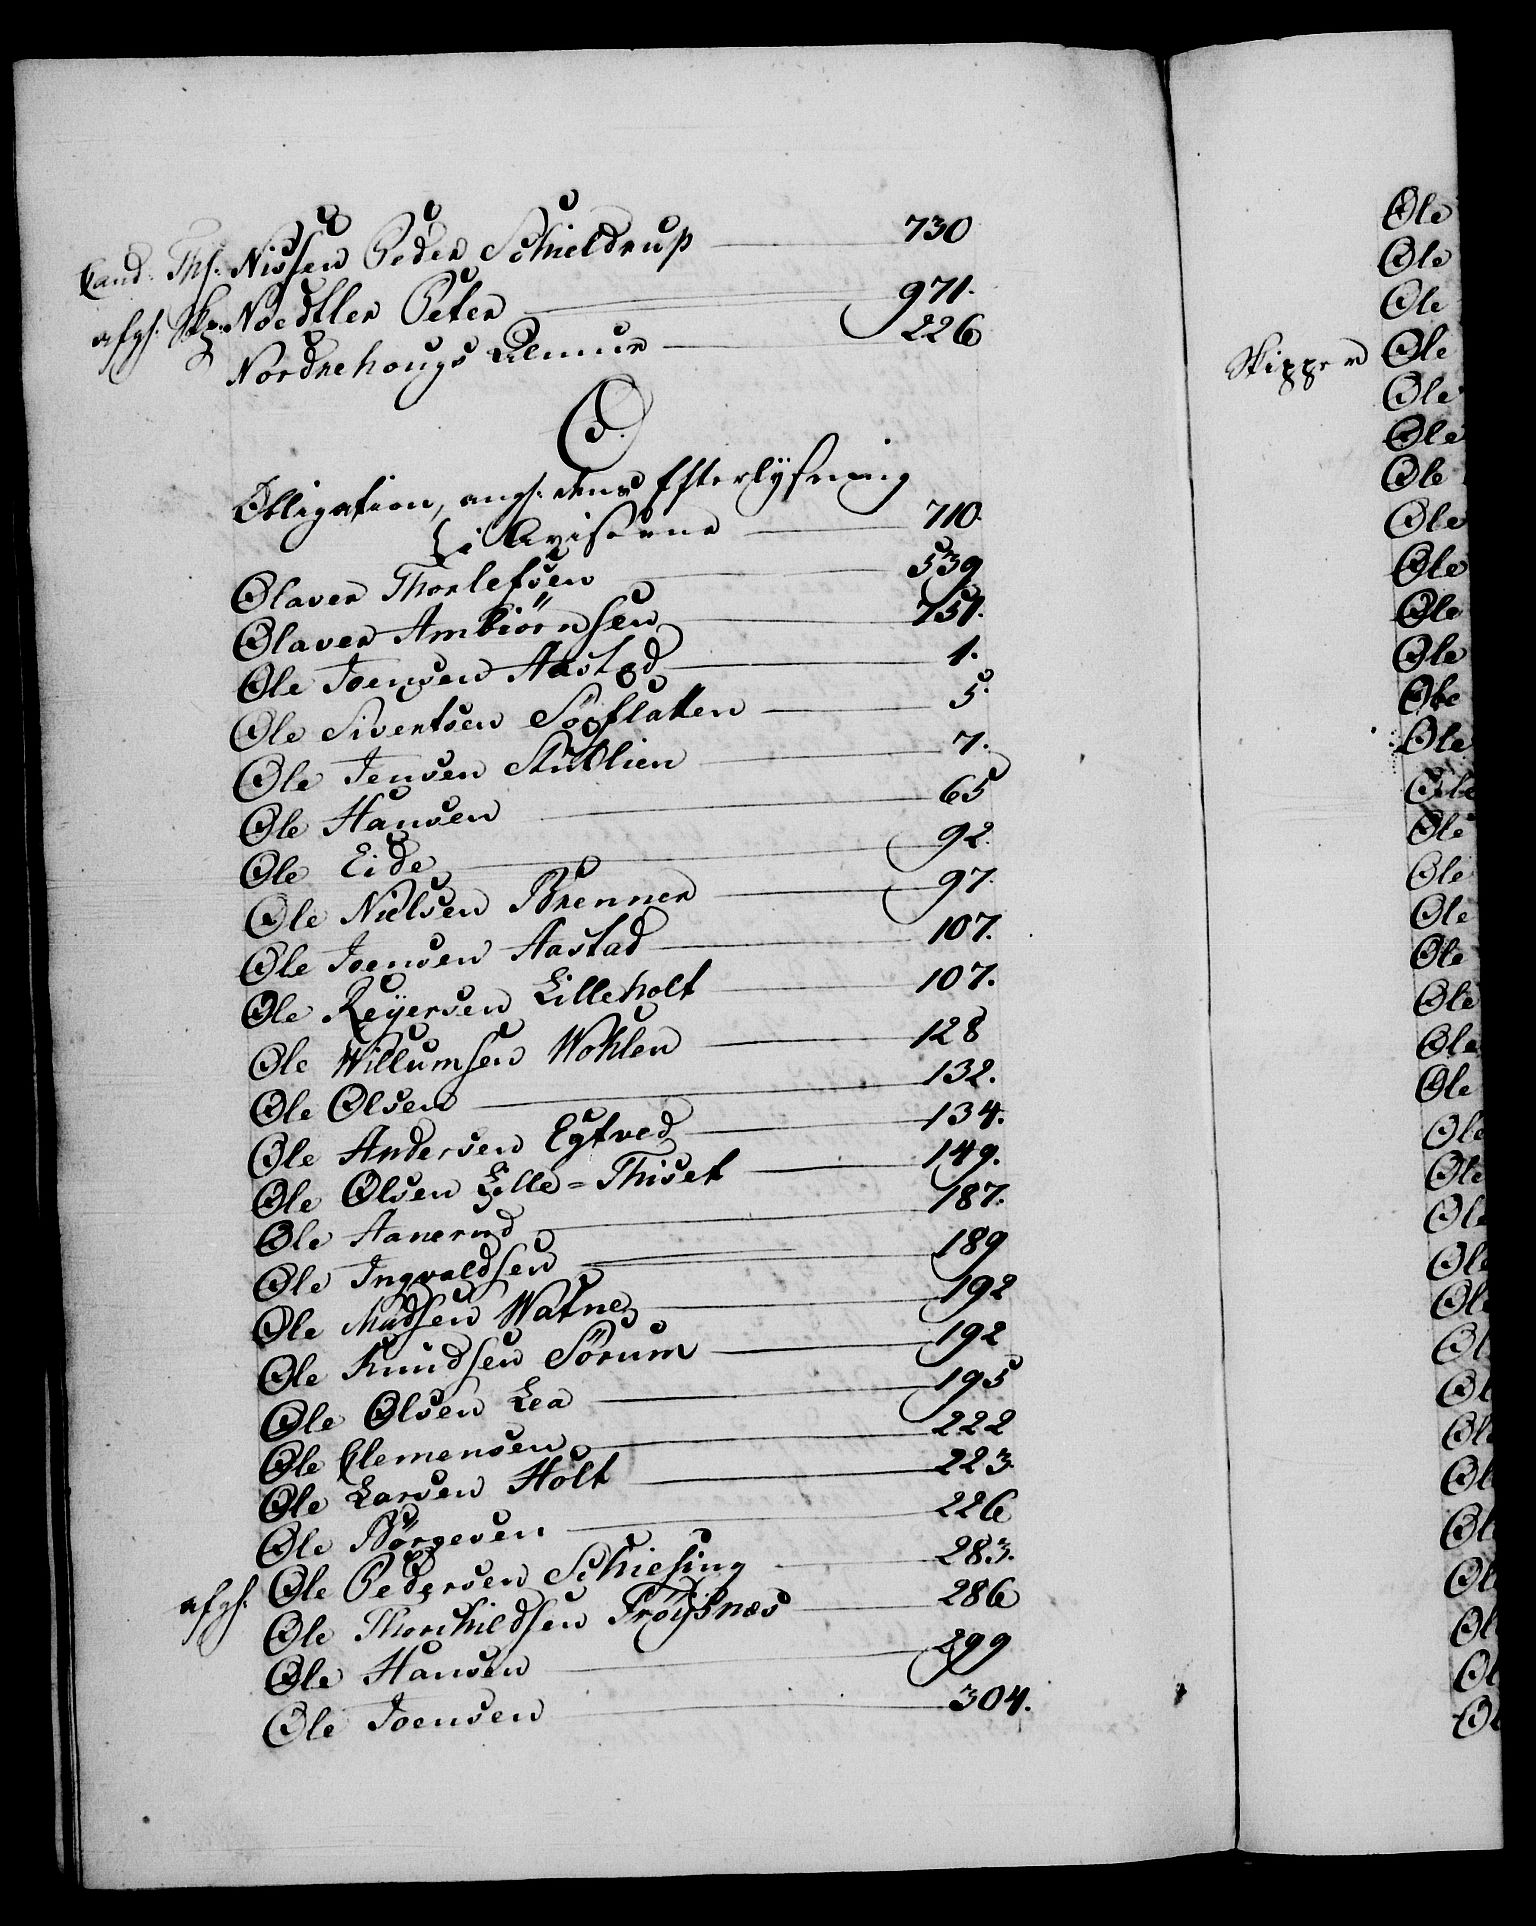 Cand: Ths: Nissen Peder Schieldrup 730
afgs. Skp: Noedtler Peter 971.
Nordrehougs Allmue 226
O.
Obligation, angs: dens Efterlysning
i Aviserne 710.
Olaver Thorlefsen 539
Olaver Ambiörnsen 751.
Ole Joensen Aastad 1.
Ole Sivertsen Sögflatten 5.
Ole Jensen Stublien 7.
Ole Hansen 65
Ole Eide 92.
Ole Nielsen Brenner 97.
Ole Joensen Aastad 107.
Ole Reyersen Lilleholt 107.
Ole Willumsen Wohlen 128
Ole Olsen 132.
Ole Andersen Egtved 134.
Ole Olsen Lille=Thiset 149.
Ole Aanerud 187.
Ole Ingvaldsen 189
Ole Madsen Watne 192
Ole Knudsen Sörum 192
Ole Olsen Lea 195
Ole Clemensen 222
Ole Larsen Holt 223.
Ole Börgesen 226
afgs. Ole Pedersen Schiesing 283.
Ole Thorchildsen Fröysnæs 286
Ole Hansen 299
Ole Joensen 304.
Ole
Ole
Ole
Skipper Ole
Ole
Ole
Ole
Ole
Ole
Ole
Ole
Ole
Ole
Ole
Ole
Ole
Ole
Ole
Ole
Ole
Ole
Ole
Ole
Ole
Ole
Ole